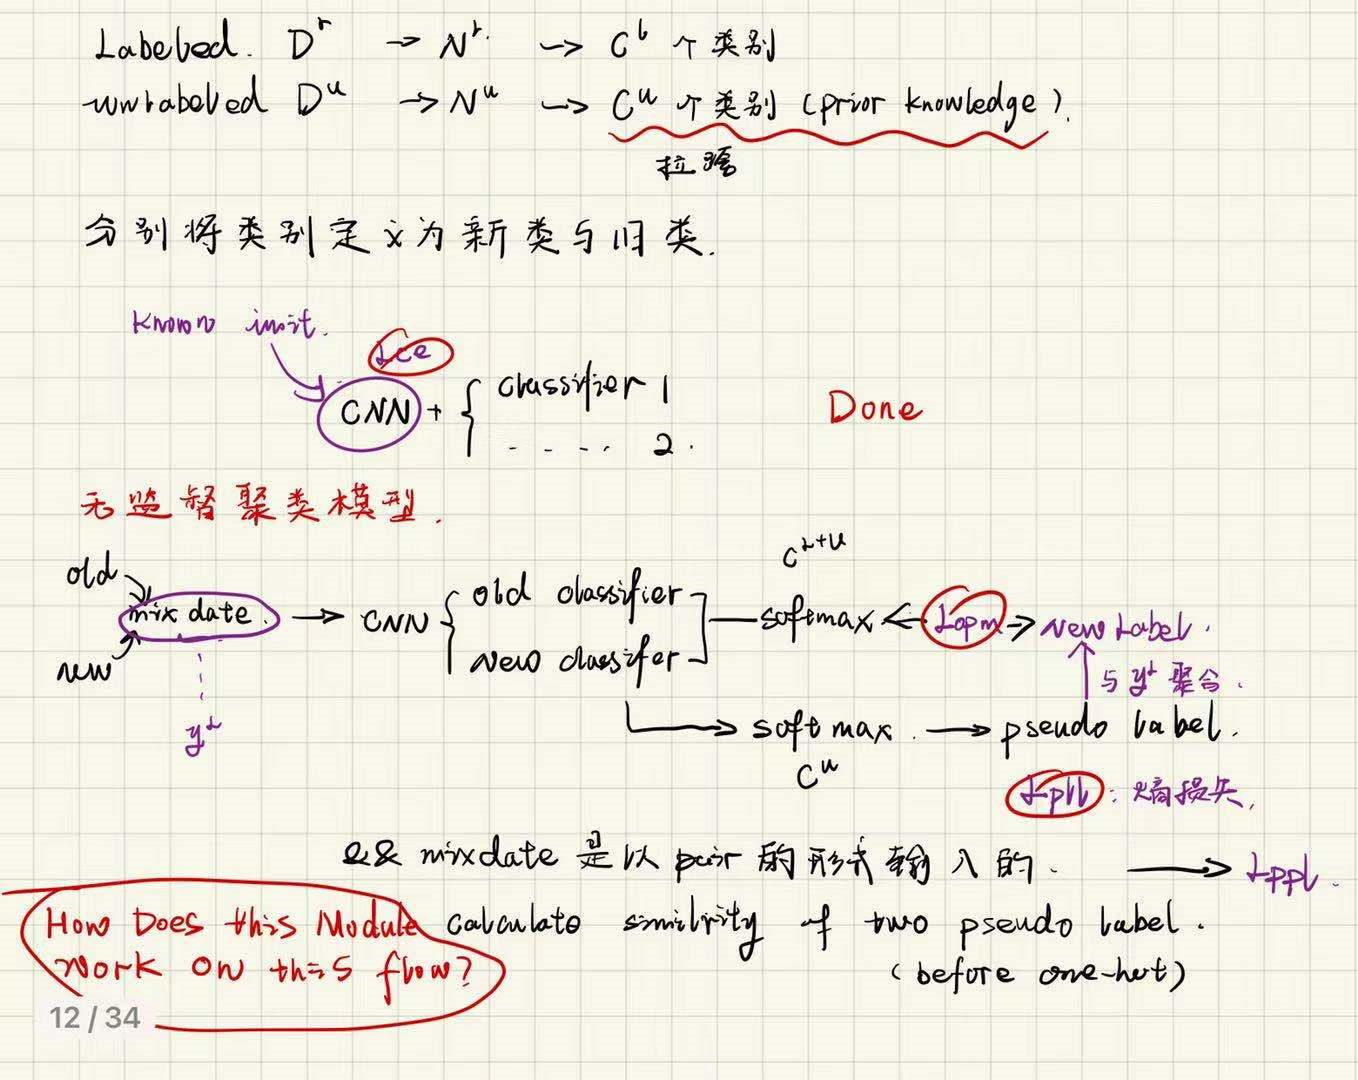 Labeled. D^r → N^r. → C^b 个类别
unlabeled D^u → N^u → C^u 个类别 (prior knowledge).
分别将类别定义为新类与旧类.
Known init.
Lce
CNN + { classifier 1
..... 2.
Done
无监督聚类模型.
C^L+U
old
mix date. → CNN { old classifier
softmax ← Lopm → New Label.
new
New classifer
与 y^L 聚合.
y^L
softmax. → pseudo label.
C^u
Lpll: 熵损失.
&& mixdate 是以 pair 的形式输入的. → Lppl.
How Does this Module
calculate similirity of two pseudo label.
work on this flow?
(before one-hot)
12 / 34